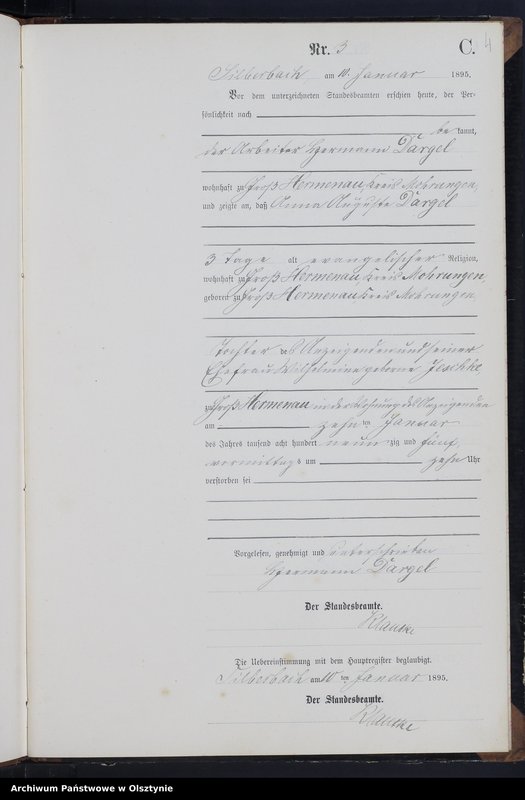 Nr. 3
C.
4
Silberbach am 10. Januar 1895.
Vor dem unterzeichneten Standesbeamten erschien heute, der Per-
sönlichkeit nach
be kannt,
der Arbeiter Hermann Dargel
wohnhaft zu Groß Hermenau, Kreis Mohrungen,
und zeigte an, daß Anna Auguste Dargel
3 Tage alt evangelischer Religion,
wohnhaft zu Groß Hermenau, Kreis Mohrungen,
geboren zu Groß Hermenau Kreis Mohrungen
Tochter des Anzeigenden und seiner
Ehefrau Wilhelmine geborne Jeschke
zu Groß Hermenau in der Wohnung des Anzeigenden
am zehn ten Januar
des Jahres tausend acht hundert neun zig und fünf
vormittags um zehn Uhr
verstorben sei
Vorgelesen, genehmigt und unterschrieben
Hermann Dargel
Der Standesbeamte.
Die Uebereinstimmung mit dem Hauptregister beglaubigt.
Silberbach am 10 ten Januar 1895.
Der Standesbeamte.
Archiwum Państwowe w Olsztynie